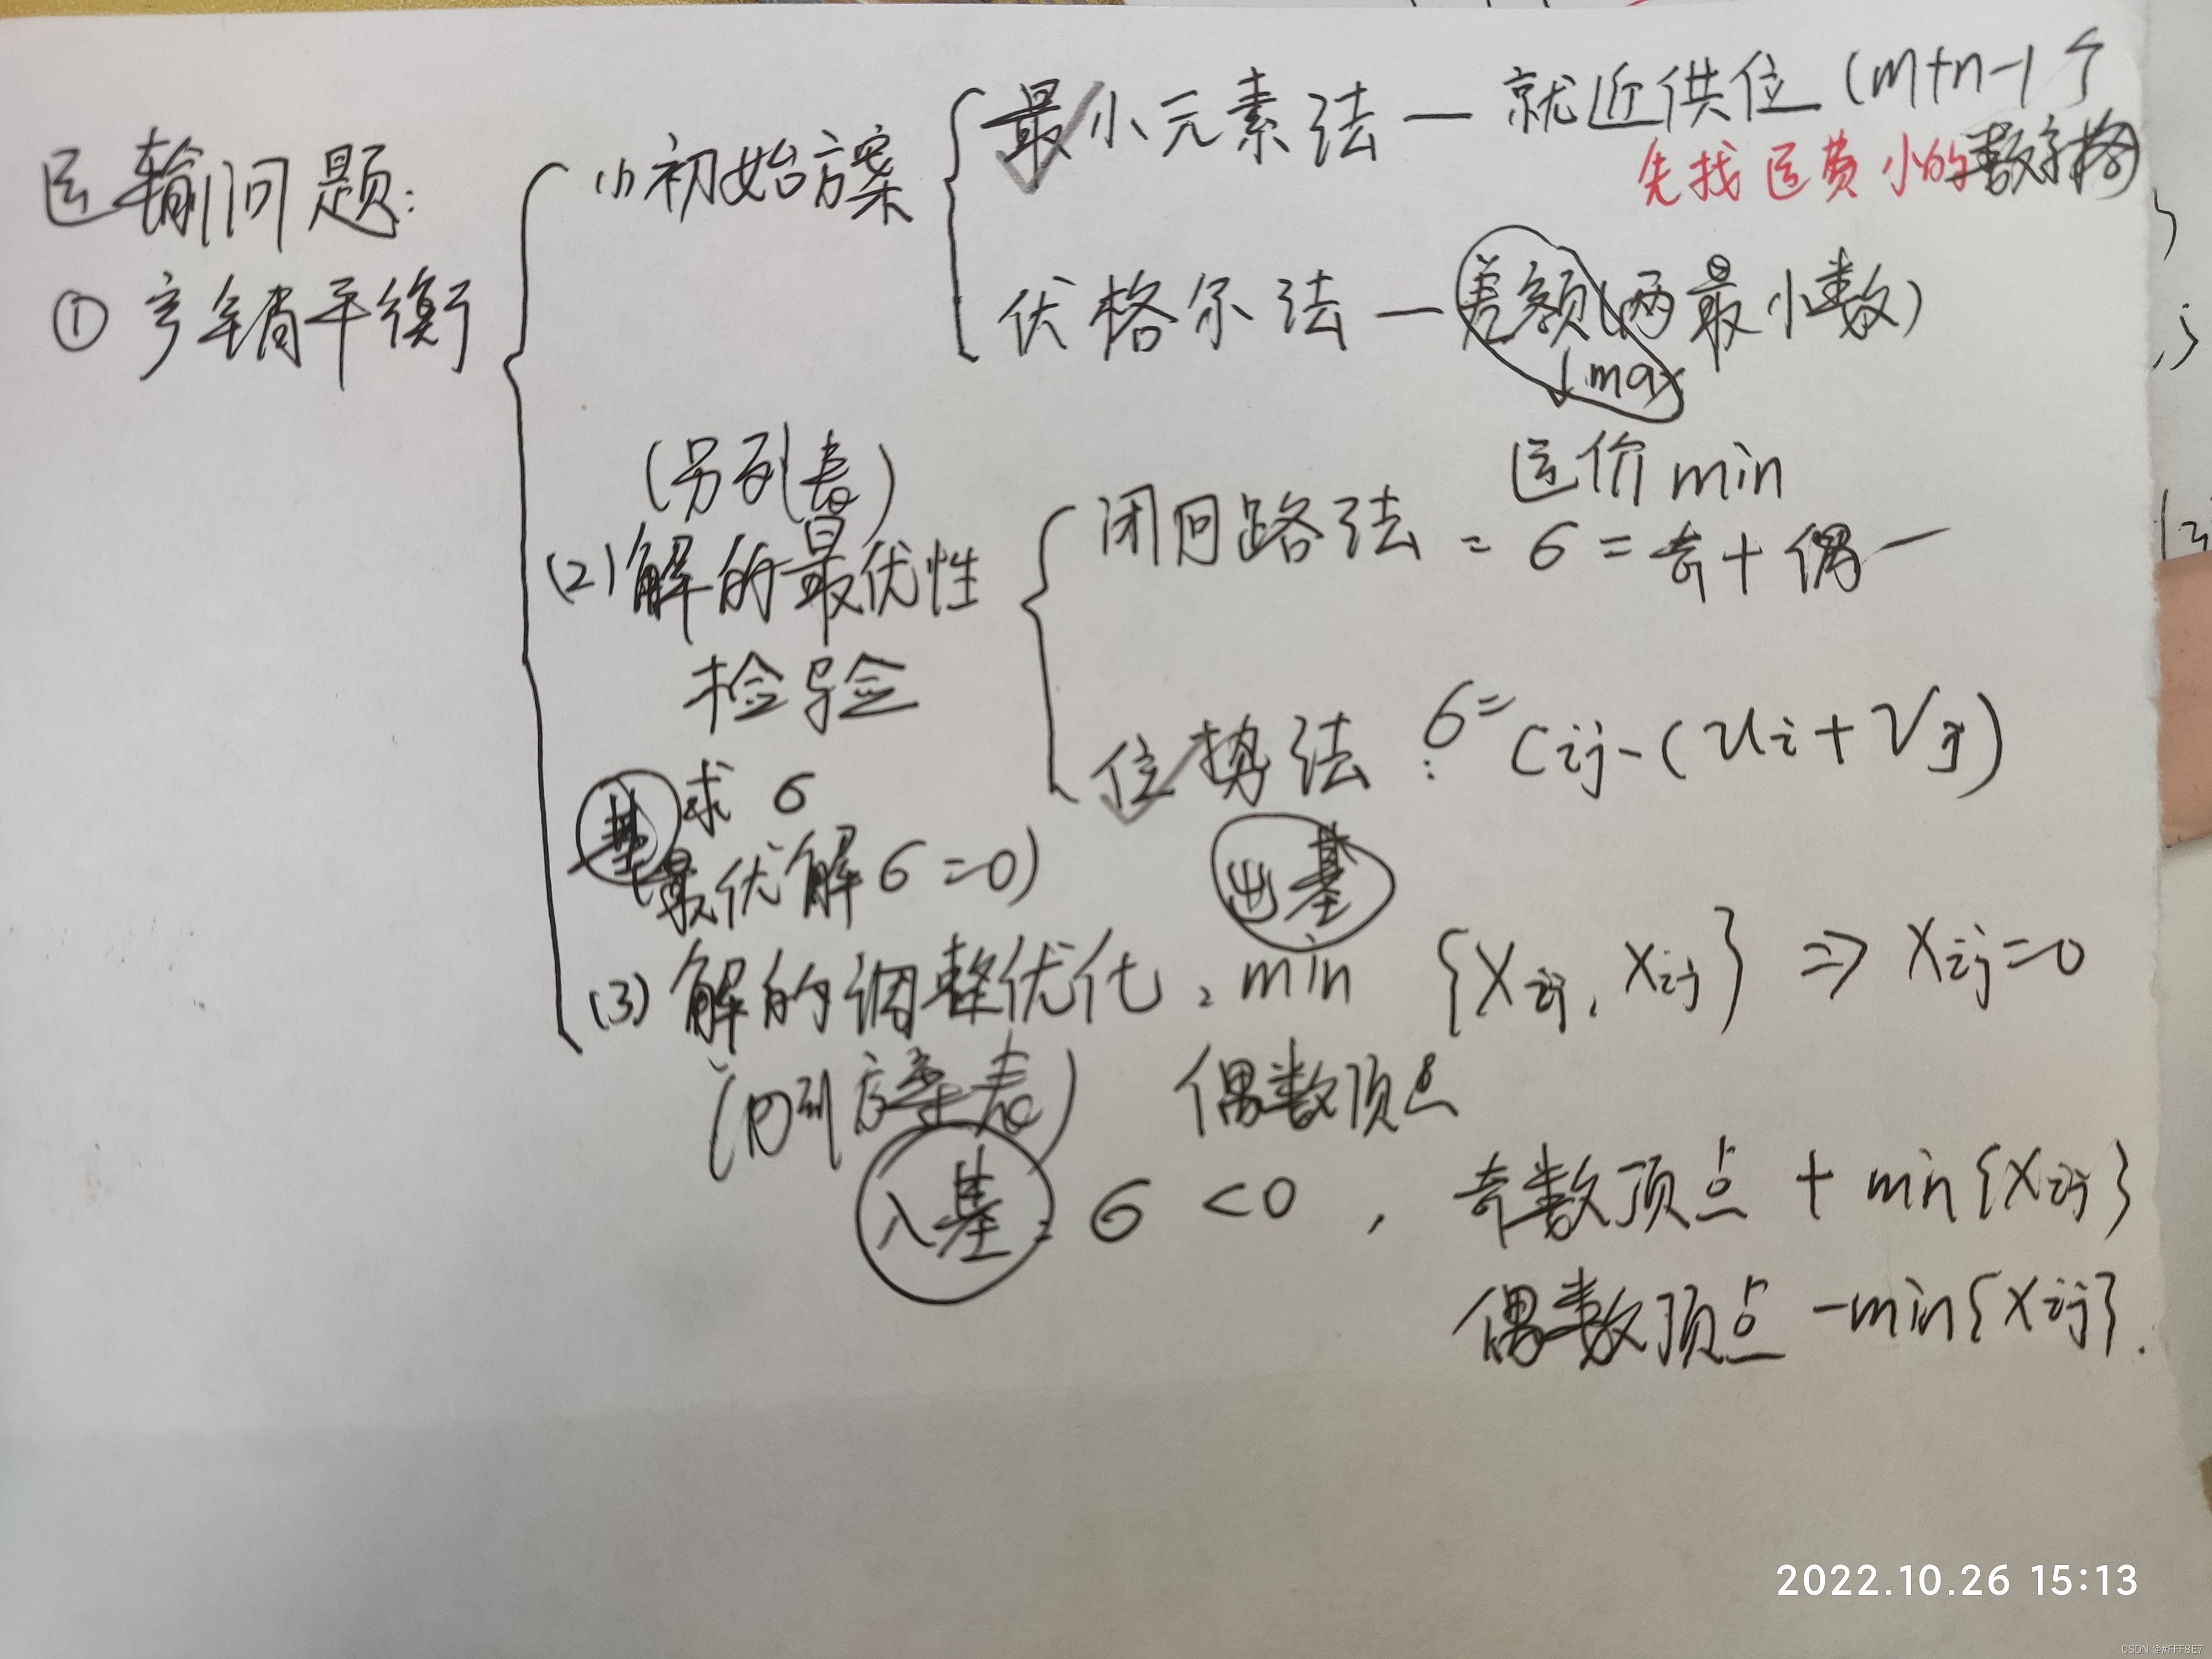 运输问题:
① 产销平衡
(1) 初始方案
最小元素法 — 就近供位 (m+n-1个
先找运费小的数字格)
伏格尔法 — 差额(两最小数)
↓max
运价min
(另列表)
(2) 解的最优性
检验
闭回路法 = σ = 奇+偶-
位势法: σ= Cij-(ui+Vj)
基 求 σ
(最优解 σ=0)
出基
(3) 解的调整优化: min {Xij, Xij} ⇒ Xij=0
(列方案表) 偶数顶点
入基: σ<0, 奇数顶点 + min{Xij}
偶数顶点 -min{Xij}.
2022.10.26 15:13
CSDN @#FFF8E7